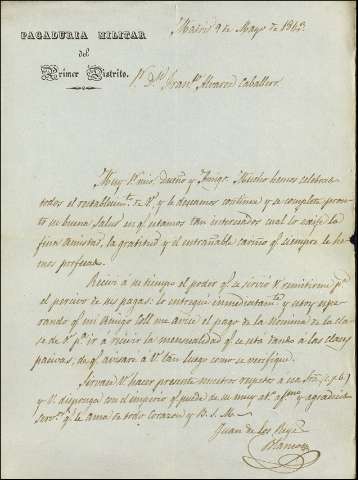 PAGADURIA MILITAR
del
Primer Distrito.
Madrid 9 de Mayo de 1843.
Sr. Dn. Franco. Alvarez Caballero.
Muy Sr. mio, dueño y Amigo. Mucho hemos celebrado
todos el restablecimto. de V. y le deseamos continue y se complete pron-
to su buena salud en qe. estamos tan interesados cual lo exije la
fina amistad, la gratitud y el entrañable cariño qe. siempre le he-
mos profesado.
Recivi á su tiempo el poder qe. se sirvió V. remitirme pa.
el percivo de sus pagas: lo entregué inmediatamte. y estoy espe-
rando qe. mi Amigo Coll me avise el pago de la Nomina de la cla-
se de V. pa. ir a recivir la mensualidad qe. se esta dando á las clases
pasivas, de qe. avisaré a V. tan luego como se verifique.
Sirvase V. hacer presente nuestros respetos a esa Sra. (c. p. b.)
y V. disponga con el imperio qe. puede de su muy ato. affmo. y agradecido
Servor. qe. le ama de todo corazon y B. S. M.
Juan de los Reyes
Blanco